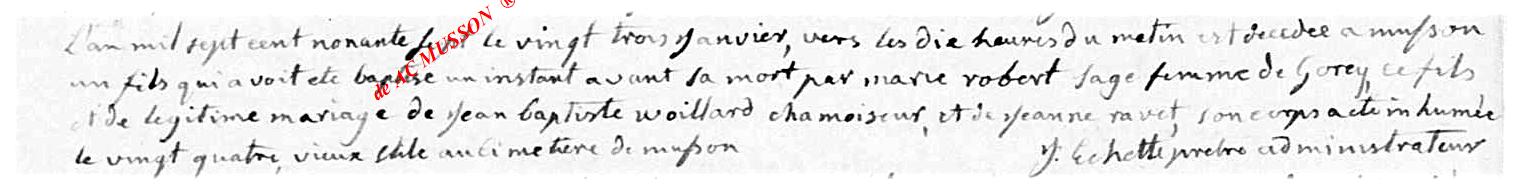 L'an mil sept cent nonante sept le vingt trois Janvier, vers les dix heures du matin est decedée a musson
un fils qui avoit été baptise un instant avant sa mort par marie robert sage femme de Gorcy, ce fils
et de legitime mariage de Jean baptiste woillard chamoiseur, et de Jeanne ravet, son corps a été inhumée
le vingt quatre, vieux stile au cimetiere de musson J. Echette pretre administrateur
de AC MUSSON ®